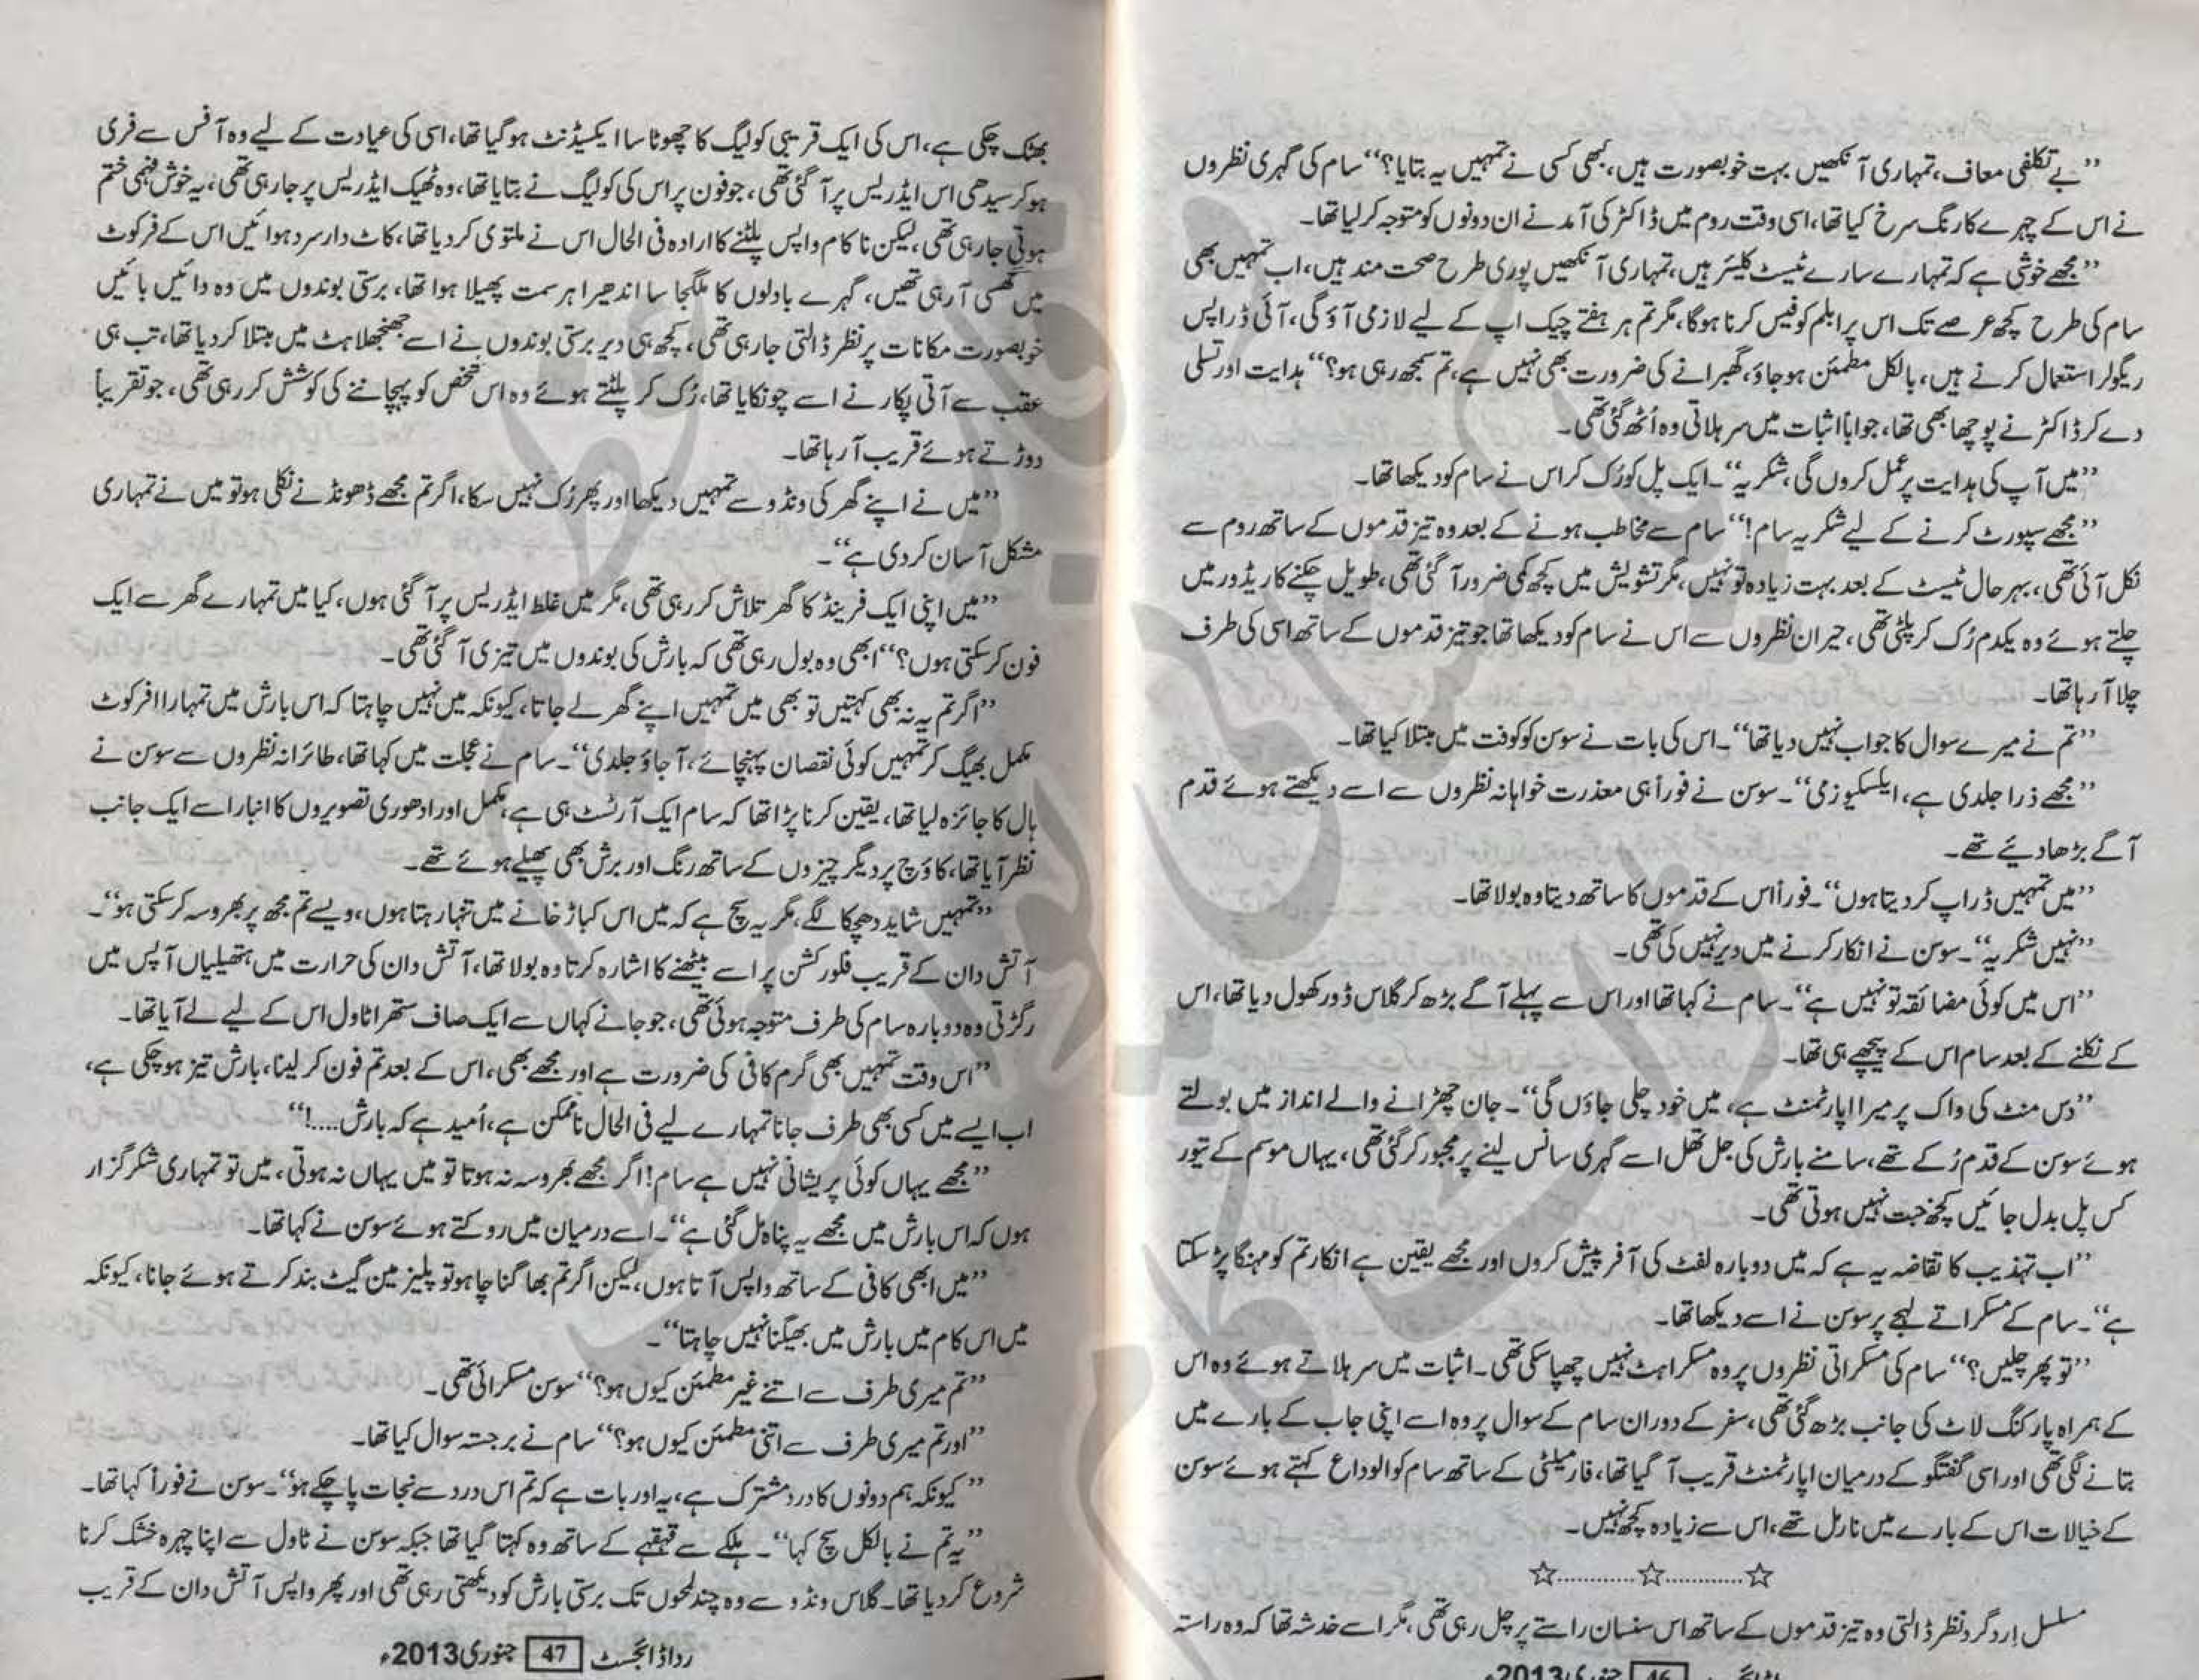 ’’بے تکلفی معاف، تمہاری آنکھیں بہت خوبصورت ہیں، کبھی کسی نے تمہیں یہ بتایا؟‘‘ سام کی گہری نظروں
نے اس کے چہرے کا رنگ سرخ کیا تھا، اسی وقت روم میں ڈاکٹر کی آمد نے ان دونوں کو متوجہ کر لیا تھا۔
’’مجھے خوشی ہے کہ تمہارے سارے ٹیسٹ کلیئر ہیں، تمہاری آنکھیں پوری طرح صحت مند ہیں، اب تمہیں بھی
سام کی طرح کچھ عرصے تک اس پرابلم کو فیس کرنا ہوگا، مگر تم ہر ہفتے چیک اپ کے لیے لازمی آؤ گی، آئی ڈراپس
ریگولر استعمال کرنے ہیں، بالکل مطمئن ہو جاؤ، گھبرانے کی ضرورت بھی نہیں ہے، تم سمجھ رہی ہو؟‘‘ ہدایت اور تسلی
دے کر ڈاکٹر نے پوچھا بھی تھا، جواباً اثبات میں سر ہلاتی وہ اُٹھ گئی تھی۔
’’میں آپ کی ہدایت پر عمل کروں گی، شکریہ‘‘۔ ایک پل کو رُک کر اس نے سام کو دیکھا تھا۔
’’مجھے سپورٹ کرنے کے لیے شکریہ سام!‘‘ سام سے مخاطب ہونے کے بعد وہ تیز قدموں کے ساتھ روم سے
نکل آئی تھی، بہرحال ٹیسٹ کے بعد بہت زیادہ تو نہیں، مگر تشویش میں کچھ کمی ضرور آ گئی تھی، طویل چکنے کاریڈور میں
چلتے ہوئے وہ یکدم رُک کر پلٹی تھی، حیران نظروں سے اس نے سام کو دیکھا تھا جو تیز قدموں کے ساتھ اسی کی طرف
چلا آ رہا تھا۔
’’تم نے میرے سوال کا جواب نہیں دیا تھا‘‘۔ اس کی بات نے سوسن کو کوفت میں مبتلا کیا تھا۔
’’مجھے ذرا جلدی ہے، ایکسکیوزمی‘‘۔ سوسن نے فوراً ہی معذرت خواہانہ نظروں سے اسے دیکھتے ہوئے قدم
آگے بڑھا دیئے تھے۔
’’میں تمہیں ڈراپ کر دیتا ہوں‘‘۔ فوراً اس کے قدموں کا ساتھ دیتا وہ بولا تھا۔
’’نہیں شکریہ‘‘۔ سوسن نے انکار کرنے میں دیر نہیں کی تھی۔
’’اس میں کوئی مضائقہ تو نہیں ہے‘‘۔ سام نے کہا تھا اور اس سے پہلے آگے بڑھ کر گلاس ڈور کھول دیا تھا، اس
کے نکلنے کے بعد سام اس کے پیچھے ہی تھا۔
’’دس منٹ کی واک پر میرا اپارٹمنٹ ہے، میں خود چلی جاؤں گی‘‘۔ جان چھڑانے والے انداز میں بولتے
ہوئے سوسن کے قدم رُکے تھے، سامنے بارش کی جل تھل اسے گہری سانس لینے پر مجبور کر گئی تھی، یہاں موسم کے تیور
کس پل بدل جائیں کچھ خبت نہیں ہوتی تھی۔
’’اب تہذیب کا تقاضہ یہ ہے کہ میں دوبارہ لفٹ کی آفر پیش کروں اور مجھے یقین ہے انکار تم کو مہنگا پڑ سکتا
ہے‘‘۔ سام کے مسکراتے لہجے پر سوسن نے اسے دیکھا تھا۔
’’تو پھر چلیں؟‘‘ سام کی مسکراتی نظروں پر وہ مسکراہٹ نہیں چھپا سکی تھی۔ اثبات میں سر ہلاتے ہوئے وہ اس
کے ہمراہ پارکنگ لاٹ کی جانب بڑھ گئی تھی، سفر کے دوران سام کے سوال پر وہ اسے اپنی جاب کے بارے میں
بتانے لگی تھی اور اسی گفتگو کے درمیان اپارٹمنٹ قریب آ گیا تھا، فارمیلٹی کے ساتھ سام کو الوداع کہتے ہوئے سوسن
کے خیالات اس کے بارے میں نارمل تھے، اس سے زیادہ کچھ نہیں۔
☆............☆............☆
مسلسل اِردگرد نظر ڈالتی وہ تیز قدموں کے ساتھ اس سنسان راستے پر چل رہی تھی، مگر اسے خدشہ تھا کہ وہ راستہ
46 جنوری 2013ء
بھٹک چکی ہے، اس کی ایک قریبی کولیگ کا چھوٹا سا ایکسیڈنٹ ہو گیا تھا، اسی کی عیادت کے لیے وہ آفس سے فری
ہو کر سیدھی اس ایڈریس پر آ گئی تھی، جو فون پر اس کی کولیگ نے بتایا تھا، وہ ٹھیک ایڈریس پر جا رہی تھی، یہ خوش فہمی ختم
ہوتی جا رہی تھی، لیکن ناکام واپس پلٹنے کا ارادہ فی الحال اس نے ملتوی کر دیا تھا، کاٹ دار سرد ہوائیں اس کے فرکوٹ
میں گھسی آ رہی تھیں، گہرے بادلوں کا ملگجا سا اندھیرا ہر سمت پھیلا ہوا تھا، برستی بوندوں میں وہ دائیں بائیں
خوبصورت مکانات پر نظر ڈالتی جا رہی تھی، کچھ ہی دیر برستی بوندوں نے اسے جھنجھلاہٹ میں مبتلا کر دیا تھا، تب ہی
عقب سے آتی پکار نے اسے چونکایا تھا، رُک کر پلٹتے ہوئے وہ اس شخص کو پہچاننے کی کوشش کر رہی تھی، جو تقریباً
دوڑتے ہوئے قریب آ رہا تھا۔
’’میں نے اپنے گھر کی ونڈو سے تمہیں دیکھا اور پھر رُک نہیں سکا، اگر تم مجھے ڈھونڈنے نکلی ہو تو میں نے تمہاری
مشکل آسان کر دی ہے‘‘۔
’’میں اپنی ایک فرینڈ کا گھر تلاش کر رہی تھی، مگر میں غلط ایڈریس پر آ گئی ہوں، کیا میں تمہارے گھر سے ایک
فون کر سکتی ہوں؟‘‘ ابھی وہ بول رہی تھی کہ بارش کی بوندوں میں تیزی آ گئی تھی۔
’’اگر تم یہ نہ بھی کہتیں تو بھی میں تمہیں اپنے گھر لے جاتا، کیونکہ میں نہیں چاہتا کہ اس بارش میں تمہارا افرکوٹ
مکمل بھیگ کر تمہیں کوئی نقصان پہنچائے، آ جاؤ جلدی‘‘۔ سام نے عجلت میں کہا تھا، طائرانہ نظروں سے سوسن نے
ہال کا جائزہ لیا تھا، یقین کرنا پڑا تھا کہ سام ایک آرٹسٹ ہی ہے، مکمل اور ادھوری تصویروں کا انبار اسے ایک جانب
نظر آیا تھا، کاؤچ پر دیگر چیزوں کے ساتھ رنگ اور برش بھی پھیلے ہوئے تھے۔
’’تمہیں شاید دھچکا لگے، مگر یہ سچ ہے کہ میں اس کباڑ خانے میں تنہا رہتا ہوں، ویسے تم مجھ پر بھروسہ کر سکتی ہو‘‘۔
آتش دان کے قریب فلور کشن پر اسے بیٹھنے کا اشارہ کرتا وہ بولا تھا، آتش دان کی حرارت میں ہتھیلیاں آپس میں
رگڑتی وہ دوبارہ سام کی طرف متوجہ ہوئی تھی، جو جانے کہاں سے ایک صاف ستھرا ٹاول اس کے لیے لے آیا تھا۔
’’اس وقت تمہیں بھی گرم کافی کی ضرورت ہے اور مجھے بھی، اس کے بعد تم فون کر لینا، بارش تیز ہو چکی ہے،
اب ایسے میں کسی بھی طرف جانا تمہارے لیے فی الحال ناممکن ہے، اُمید ہے کہ بارش....!‘‘
’’مجھے یہاں کوئی پریشانی نہیں ہے سام! اگر مجھے بھروسہ نہ ہوتا تو میں یہاں نہ ہوتی، میں تو تمہاری شکر گزار
ہوں کہ اس بارش میں مجھے یہ پناہ مل گئی ہے‘‘۔ اسے درمیان میں روکتے ہوئے سوسن نے کہا تھا۔
’’میں ابھی کافی کے ساتھ واپس آتا ہوں، لیکن اگر تم بھاگنا چاہو تو پلیز مین گیٹ بند کرتے ہوئے جانا، کیونکہ
میں اس کام میں بارش میں بھیگنا نہیں چاہتا‘‘۔
’’تم میری طرف سے اتنے غیر مطمئن کیوں ہو؟‘‘ سوسن مسکرائی تھی۔
’’اور تم میری طرف سے اتنی مطمئن کیوں ہو؟‘‘ سام نے برجستہ سوال کیا تھا۔
’’کیونکہ ہم دونوں کا درد مشترک ہے، یہ اور بات ہے کہ تم اس درد سے نجات پا چکے ہو‘‘۔ سوسن نے فوراً کہا تھا۔
’’یہ تم نے بالکل سچ کہا‘‘۔ ہلکے سے قہقہے کے ساتھ وہ کہتا گیا تھا جبکہ سوسن نے ٹاول سے اپنا چہرہ خشک کرنا
شروع کر دیا تھا۔ گلاس ونڈو سے وہ چند لمحوں تک برستی بارش کو دیکھتی رہی تھی اور پھر واپس آتش دان کے قریب
رداڈائجسٹ 47 جنوری 2013ء